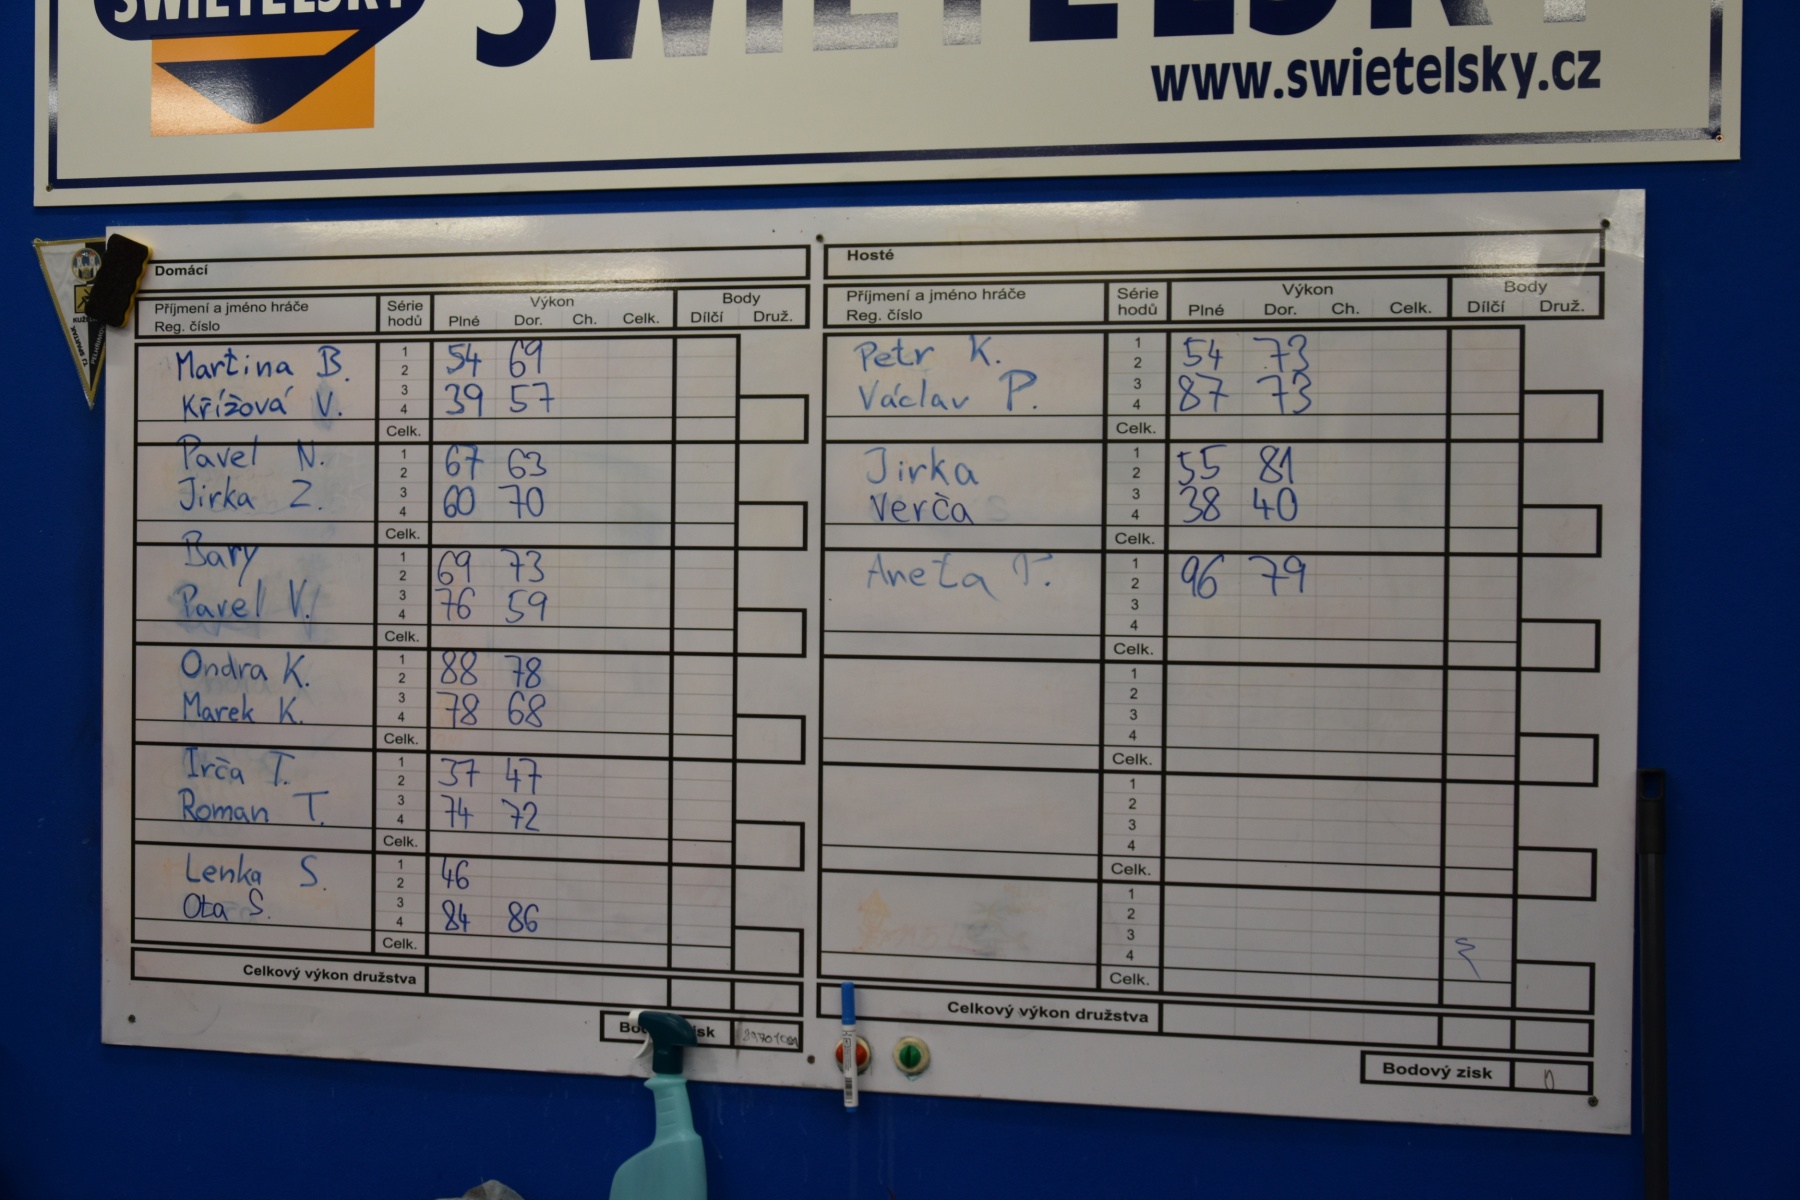 SWIETELSKY
SWIETELSKY
www.swietelsky.cz
Domácí
Příjmení a jméno hráče Série hodů Výkon Body
Reg. číslo Plné Dor. Ch. Celk. Dílčí Druž.
Martina B. 1 2 54 69
Křížová V. 3 4 39 57
Celk.
Pavel N. 1 2 67 63
Jirka Z. 3 4 60 70
Celk.
Bary 1 2 69 73
Pavel V. 3 4 76 59
Celk.
Ondra K. 1 2 88 78
Marek K. 3 4 78 68
Celk.
Irča T. 1 2 37 47
Roman T. 3 4 74 72
Celk.
Lenka S. 1 2 46
Ota S. 3 4 84 86
Celk.
Celkový výkon družstva
Hosté
Příjmení a jméno hráče Série hodů Výkon Body
Reg. číslo Plné Dor. Ch. Celk. Dílčí Druž.
Petr K. 1 2 54 73
Václav P. 3 4 87 73
Celk.
Jirka 1 2 55 81
Verča 3 4 38 40
Celk.
Aneta T. 1 2 96 79
3
4
Celk.
1
2
3
4
Celk.
1
2
3
4
Celk.
1
2
3
4
Celk.
Celkový výkon družstva
Bodový zisk